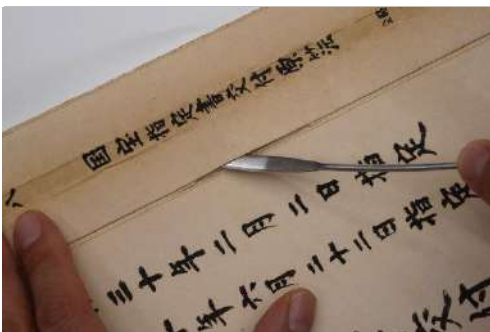 国宝指定書交付願
三十年二月二日指定
年六月二十二日指定
交付